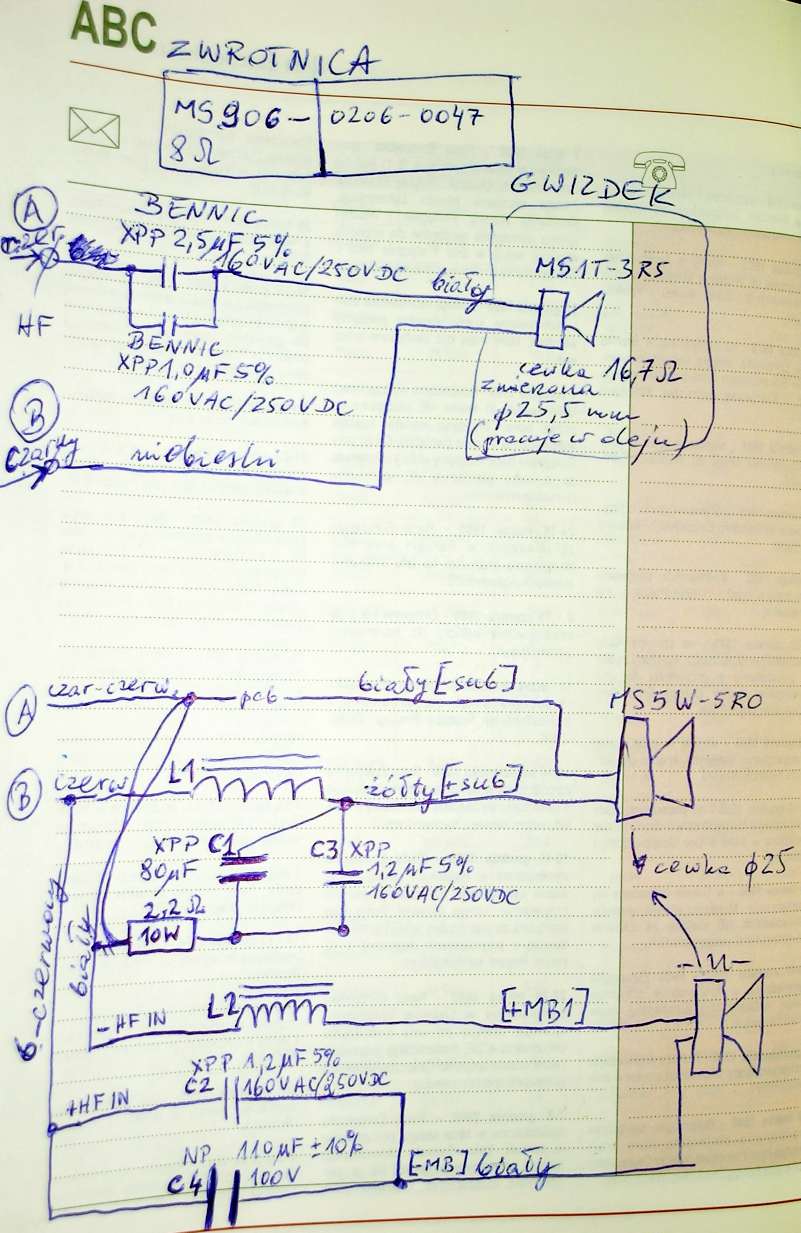 ABC
ZWROTNICA
MS906- 0206-0047
8Ω
GWIZDEK
A
BENNIC
czer.
XPP 2,5µF 5%
160VAC/250VDC
biały
MS1T-3R5
HF
BENNIC
XPP 1,0µF 5%
160VAC/250VDC
cewka 16,7Ω
zmierzona
φ25,5mm
(pracuje w oleju)
B
czarny
niebieski
A
czar-czerw.
pcb
biały [-sub]
MS5W-5R0
B
czerw.
L1
żółty [+sub]
XPP C1
80µF
C3 XPP
1,2µF 5%
160VAC/250VDC
cewka φ25
2,2Ω
10W
czerwony
biały
-II-
-HF IN
L2
[+MB1]
XPP 1,2µF 5%
C2 160VAC/250VDC
+HF IN
NP 110µF ±10%
C4 100V
[-MB] biały